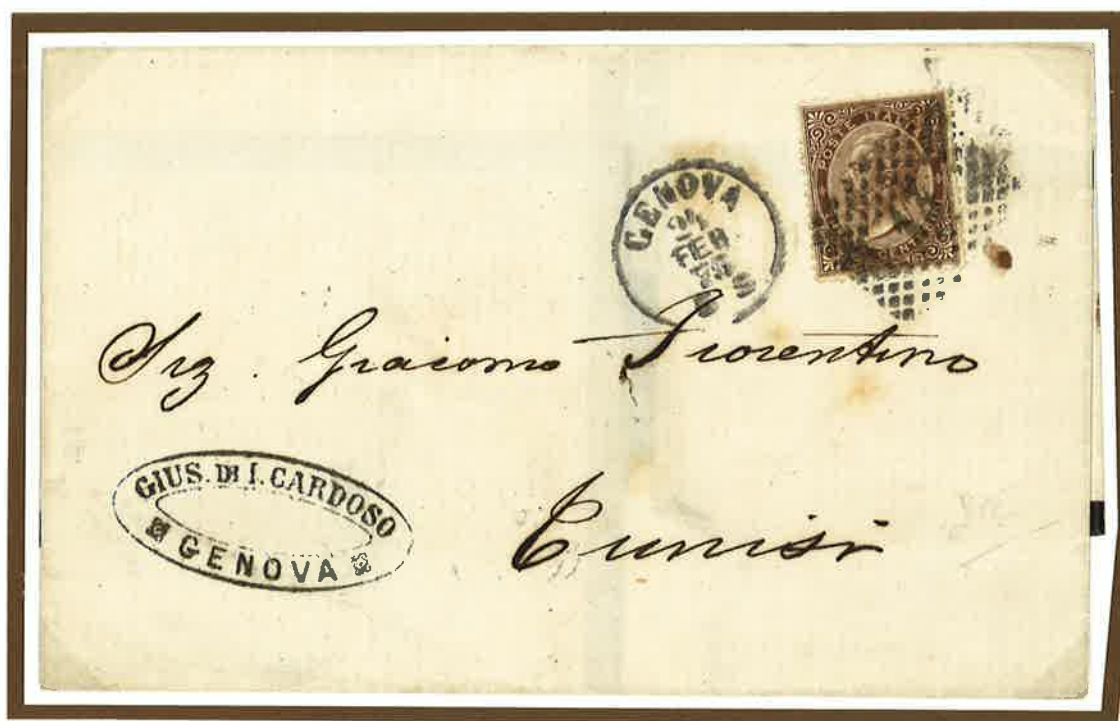 GENOVA
24
FEB
POSTE ITA
CENT
Sig. Giacomo Fiorentino
GIUS. DI I. CARDOSO
GENOVA
Tunisi